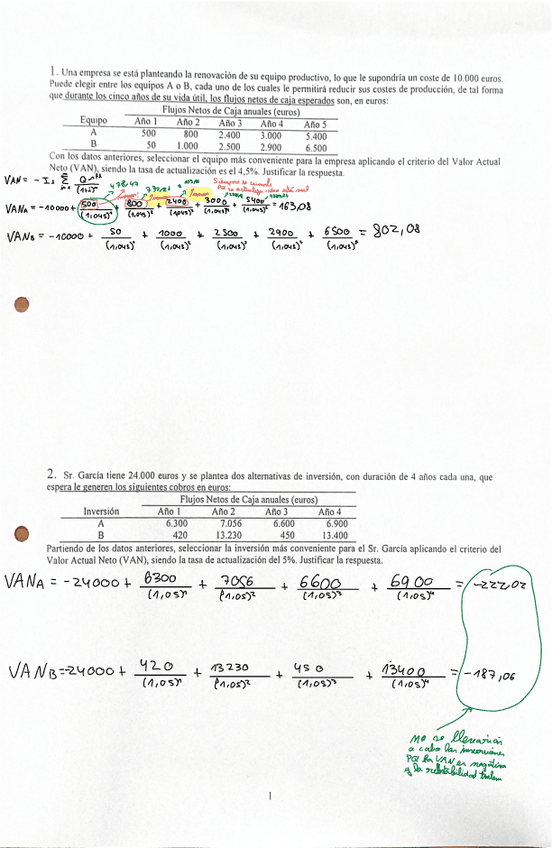 1. Una empresa se está planteando la renovación de su equipo productivo, lo que le supondría un coste de 10.000 euros.
Puede elegir entre los equipos A o B, cada uno de los cuales le permitirá reducir sus costes de producción, de tal forma
que durante los cinco años de su vida útil, los flujos netos de caja esperados son, en euros:
Flujos Netos de Caja anuales (euros)
Equipo Año 1 Año 2 Año 3 Año 4 Año 5
A 500 800 2.400 3.000 5.400
B 50 1.000 2.500 2.900 6.500
Con los datos anteriores, seleccionar el equipo más conveniente para la empresa aplicando el criterio del Valor Actual
Neto (VAN), siendo la tasa de actualización el 4,5%. Justificar la respuesta.
VAN = - I
478,47
VAN A = -10000 + 500/(1,045)¹ + 800/(1,045)² + 2400/(1,045)³ + 3000/(1,045)⁴ + 5400/(1,045)⁵ = 163,08
VAN B = -10000 + 50/(1,045)¹ + 1000/(1,045)² + 2500/(1,045)³ + 2900/(1,045)⁴ + 6500/(1,045)⁵ = 802,08
2. Sr. García tiene 24.000 euros y se plantea dos alternativas de inversión, con duración de 4 años cada una, que
espera le generen los siguientes cobros en euros:
Flujos Netos de Caja anuales (euros)
Inversión Año 1 Año 2 Año 3 Año 4
A 6.300 7.056 6.600 6.900
B 420 13.230 450 13.400
Partiendo de los datos anteriores, seleccionar la inversión más conveniente para el Sr. García aplicando el criterio del
Valor Actual Neto (VAN), siendo la tasa de actualización del 5%. Justificar la respuesta.
VAN A = -24000 + 6300/(1,05)¹ + 7056/(1,05)² + 6600/(1,05)³ + 6900/(1,05)⁴ = -222,02
VAN B = -24000 + 420/(1,05)¹ + 13230/(1,05)² + 450/(1,05)³ + 13400/(1,05)⁴ = -187,06
no se llevarían
a cabo las inversiones
por VAN es negativo
y la rentabilidad
1